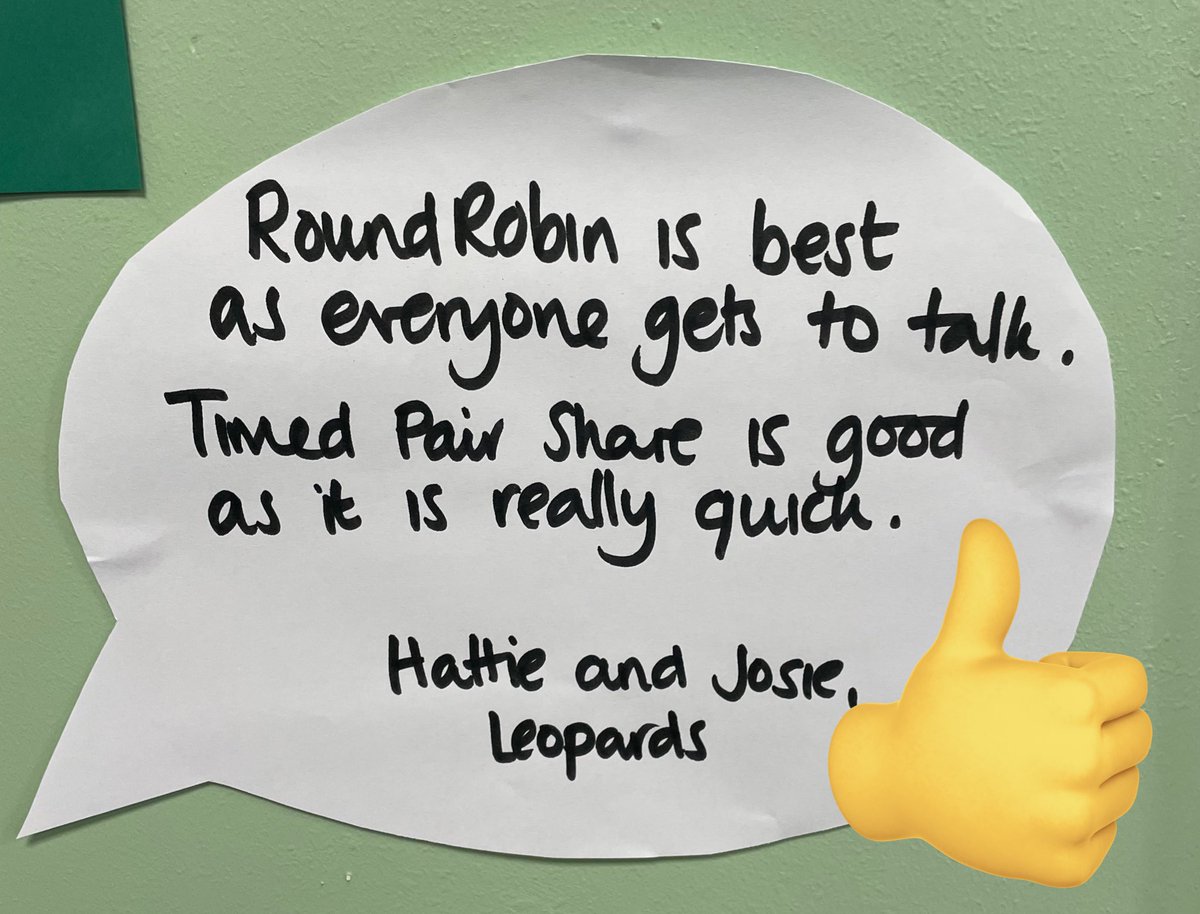 Round Robin is best
as everyone gets to talk.
Timed Pair Share is good
as it is really quick.
Hattie and Josie,
Leopards